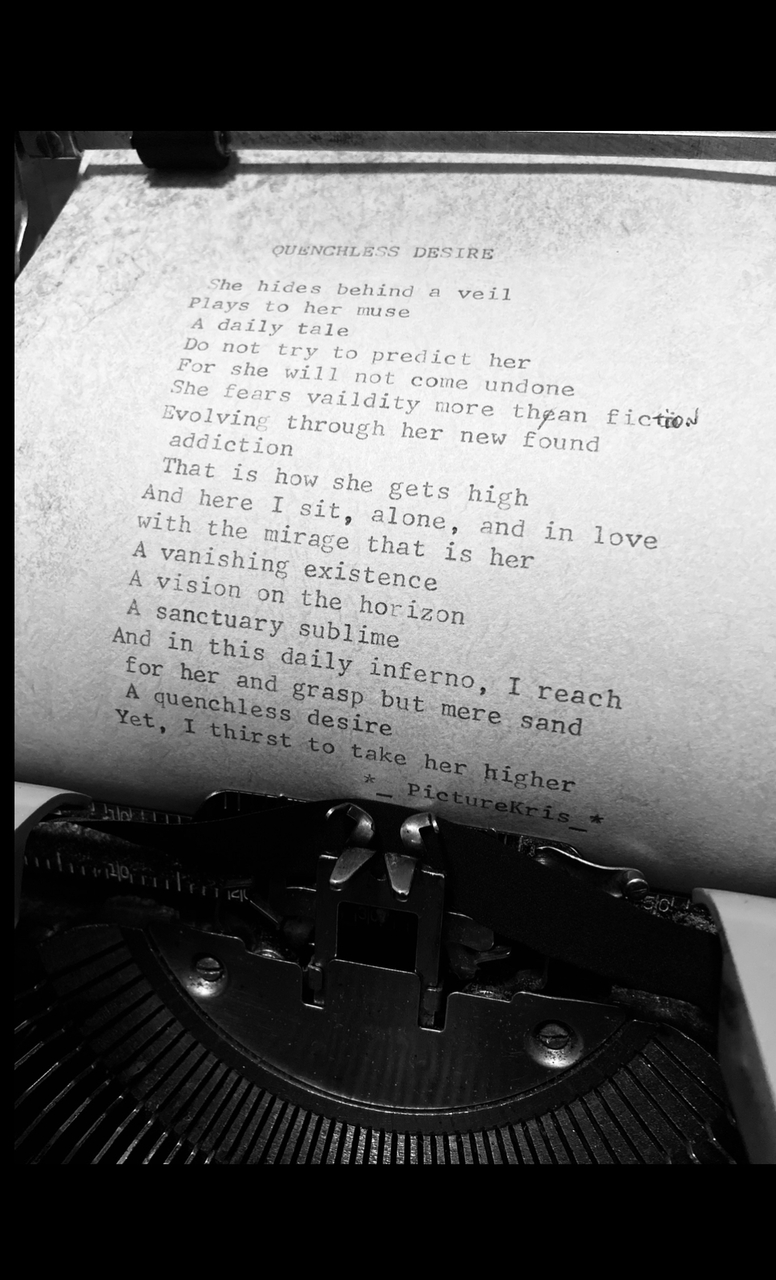 QUENCHLESS DESIRE
She hides behind a veil
Plays to her muse
A daily tale
Do not try to predict her
For she will not come undone
She fears vaildity more than fiction
Evolving through her new found
addiction
That is how she gets high
And here I sit, alone, and in love
with the mirage that is her
A vanishing existence
A vision on the horizon
A sanctuary sublime
And in this daily inferno, I reach
for her and grasp but mere sand
A quenchless desire
Yet, I thirst to take her higher
*_ PictureKris_*